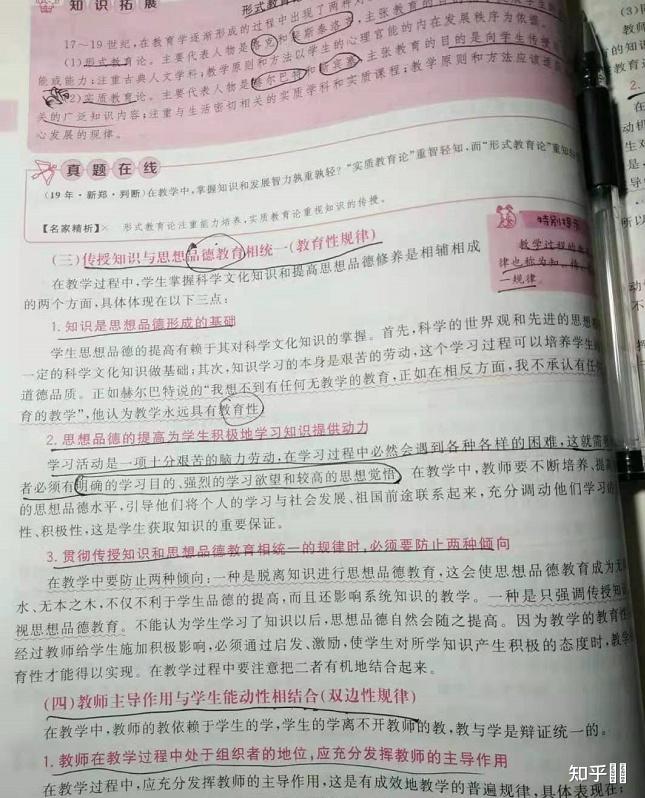 知识拓展
形式教育
17～19世纪,在教育学逐渐形成的过程中出现了两种
(1)形式教育论。主要代表人物是洛克和裴斯泰洛齐,主张教育的目的
能或能力;注重古典人文学科;教学原则和方法以学生的心理官能的内在发展秩序为依据。
(2)实质教育论。主要代表人物是赫尔巴特和斯宾塞,主张教育的目的是向学生传授
关的广泛知识内容;注重与生活密切相关的实质学科和实质课程;教学原则和方法应该适应
心发展的规律。
真题在线
(19年·新郑·判断)在教学中,掌握知识和发展智力孰重孰轻?“实质教育论”重智轻知,而“形式教育论”重知
【名家精析】× 形式教育论注重能力培养,实质教育论重视知识的传授。
(三)传授知识与思想品德教育相统一(教育性规律)
特别提示
教学过程的
律也称为
一规律。
在教学过程中,学生掌握科学文化知识和提高思想品德修养是相辅相成
的两个方面,具体体现在以下三点:
1.知识是思想品德形成的基础
学生思想品德的提高有赖于其对科学文化知识的掌握。首先,科学的世界观和先进的思想
一定的科学文化知识做基础;其次,知识学习的本身是艰苦的劳动,这个学习过程可以培养学生
道德品质。正如赫尔巴特说的“我想不到有任何无教学的教育,正如在相反方面,我不承认有任
育的教学”,他认为教学永远具有教育性。
2.思想品德的提高为学生积极地学习知识提供动力
学习活动是一项十分艰苦的脑力劳动,在学习过程中必然会遇到各种各样的困难,这就需要
者必须有明确的学习目的、强烈的学习欲望和较高的思想觉悟。在教学中,教师要不断培养、提高
的思想品德水平,引导他们将个人的学习与社会发展、祖国前途联系起来,充分调动他们学习的
性、积极性,这是学生获取知识的重要保证。
3.贯彻传授知识和思想品德教育相统一的规律时,必须要防止两种倾向
在教学中要防止两种倾向:一种是脱离知识进行思想品德教育,这会使思想品德教育成为无
水、无本之木,不仅不利于学生品德的提高,而且还影响系统知识的教学。一种是只强调传授知
视思想品德教育。不能认为学生学习了知识以后,思想品德自然会随之提高。因为教学的教育性
经过教师给学生施加积极影响,必须通过启发、激励,使学生对所学知识产生积极的态度时,教学
育性才能得以实现。在教学过程中要注意把二者有机地结合起来。
(四)教师主导作用与学生能动性相结合(双边性规律)
在教学中,教师的教依赖于学生的学,学生的学离不开教师的教,教与学是辩证统一的。
1.教师在教学过程中处于组织者的地位,应充分发挥教师的主导作用
在教学过程中,应充分发挥教师的主导作用,这是有成效地教学的普遍规律,具体表现在:
知乎